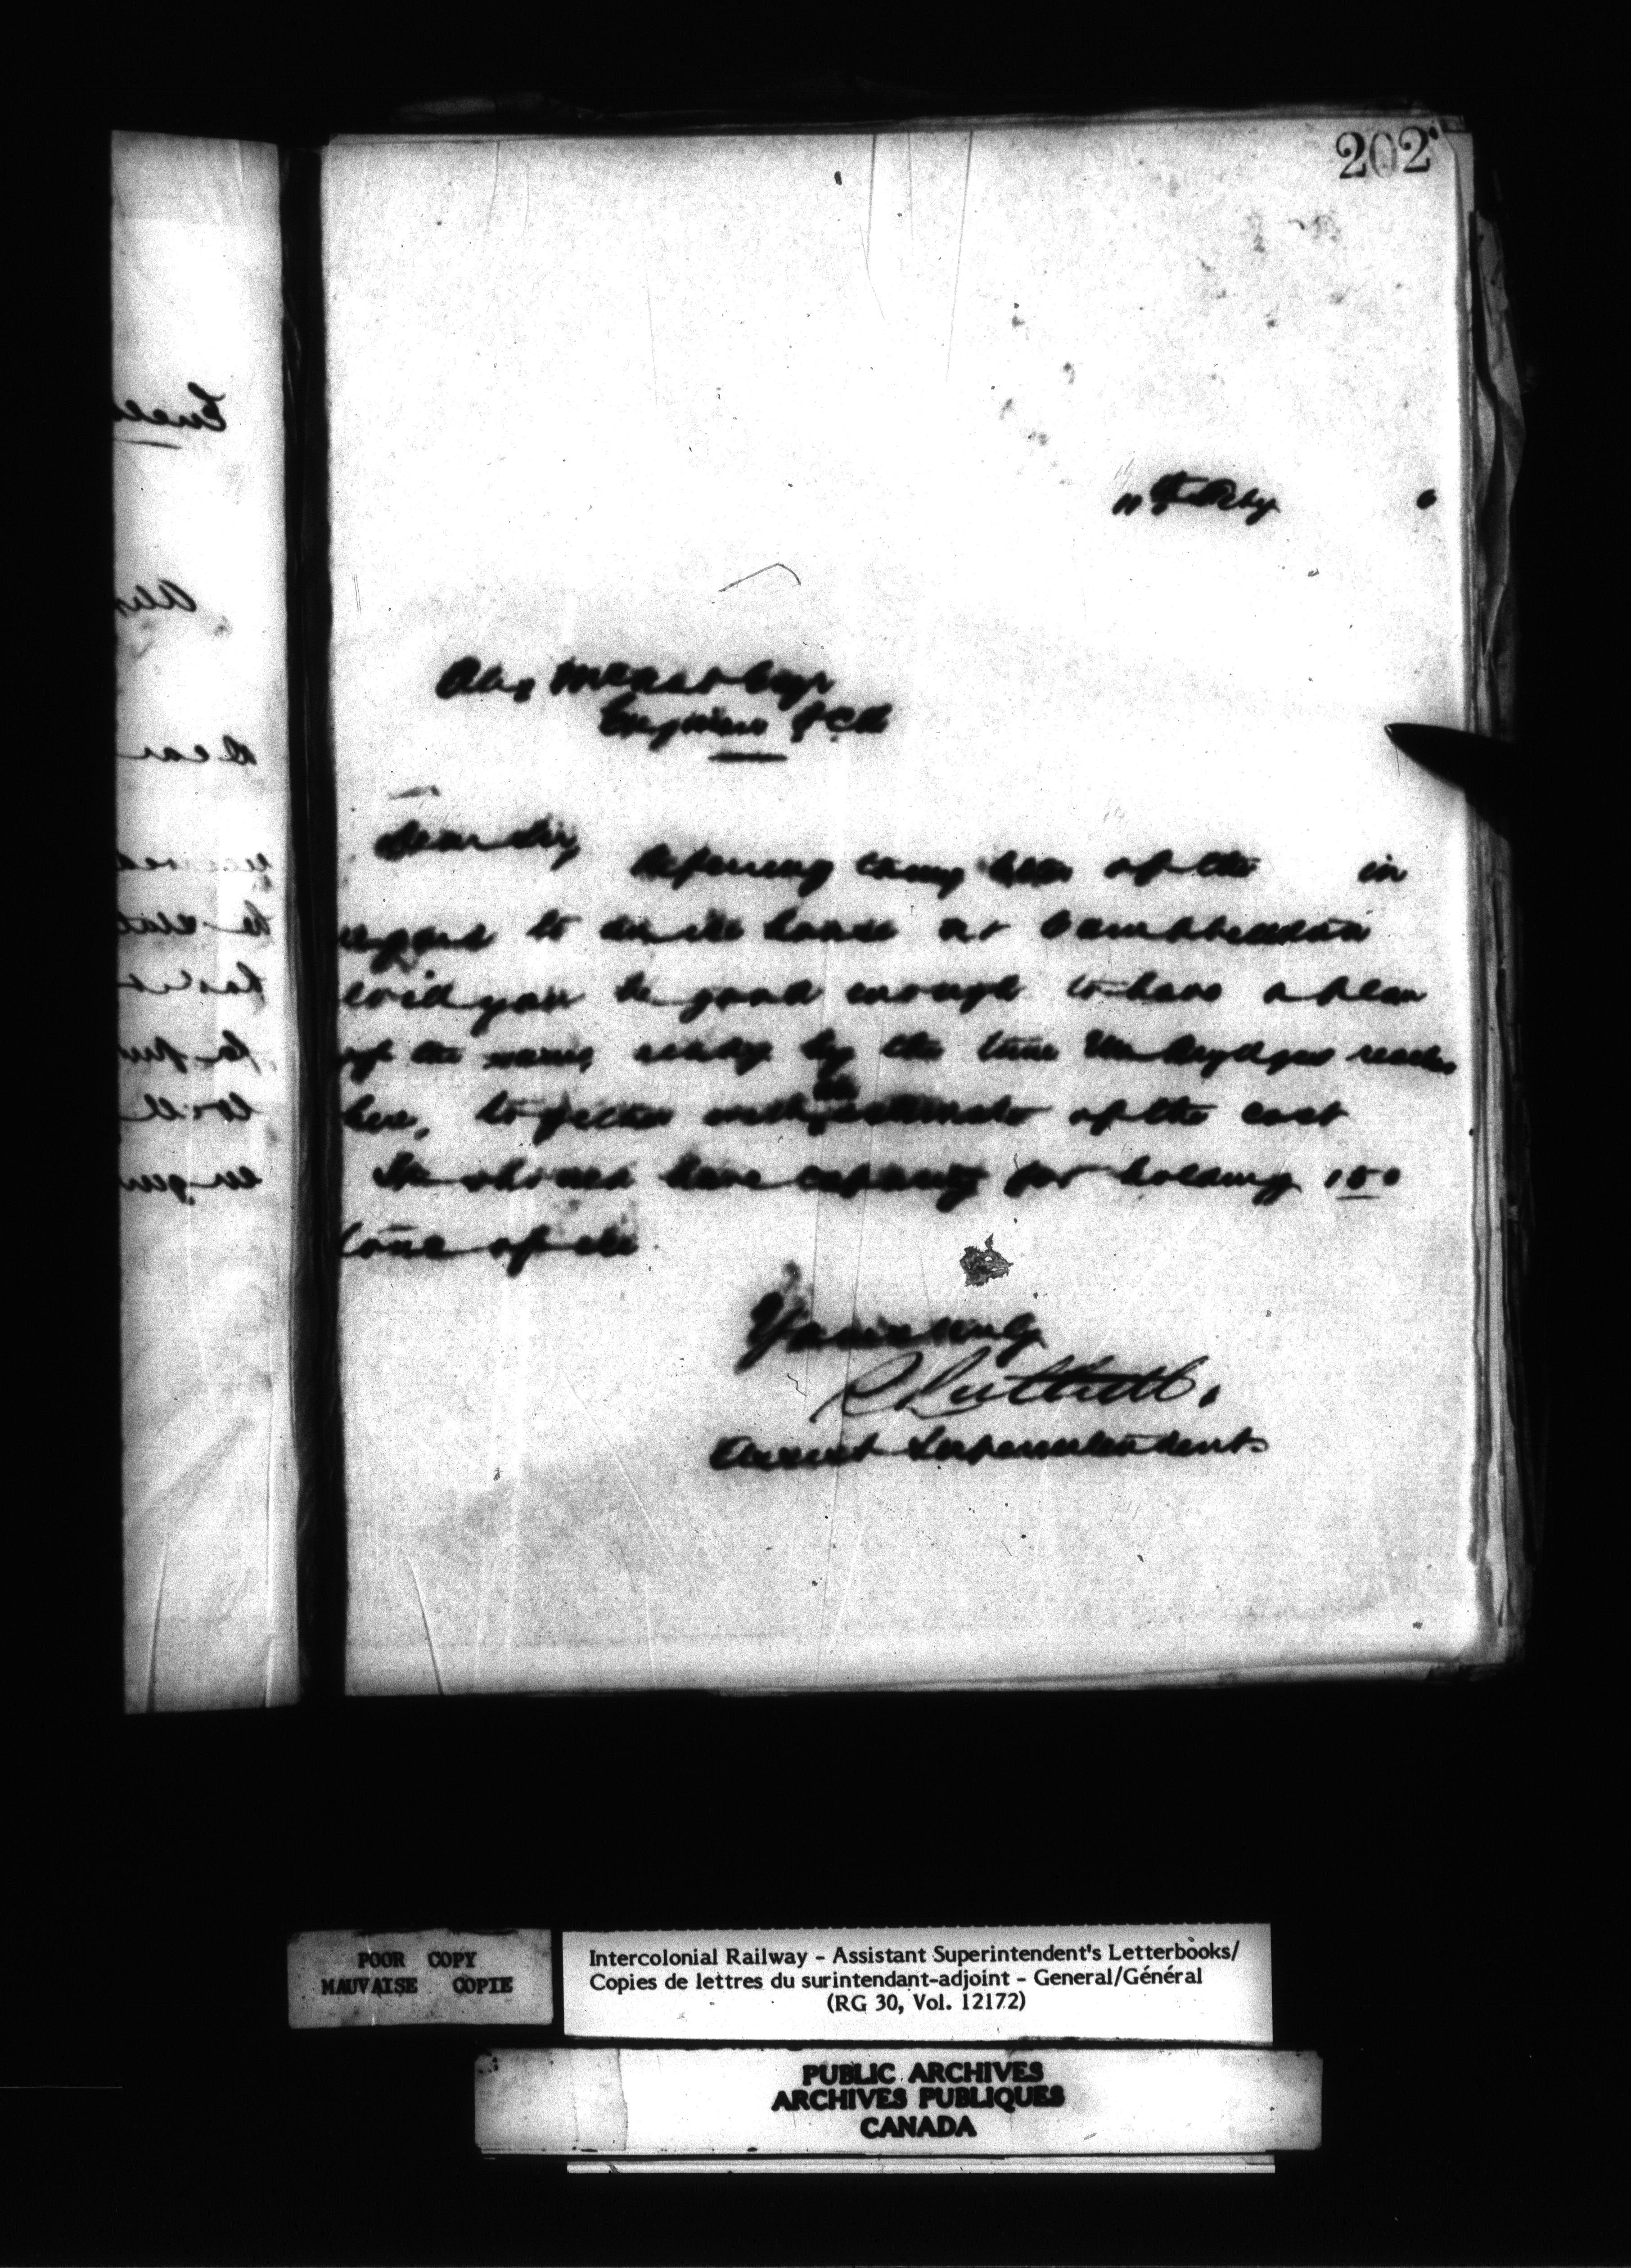 202
11th July
Alex McNab Esqr
Engineer ICR
Dear Sir,
Referring to my letter of the in
regard to an ice house at Campbellton
will you be good enough to have a plan
of the same, ready by the time Mr Brydges reaches
here, together with an estimate of the cost
It should have capacity for holding 150
tons of ice
Yours truly
Luttrell.
Assist Superintendent
POOR COPY
MAUVAISE COPIE
Intercolonial Railway - Assistant Superintendent's Letterbooks/
Copies de lettres du surintendant-adjoint - General/Général
(RG 30, Vol. 12172)
PUBLIC ARCHIVES
ARCHIVES PUBLIQUES
CANADA